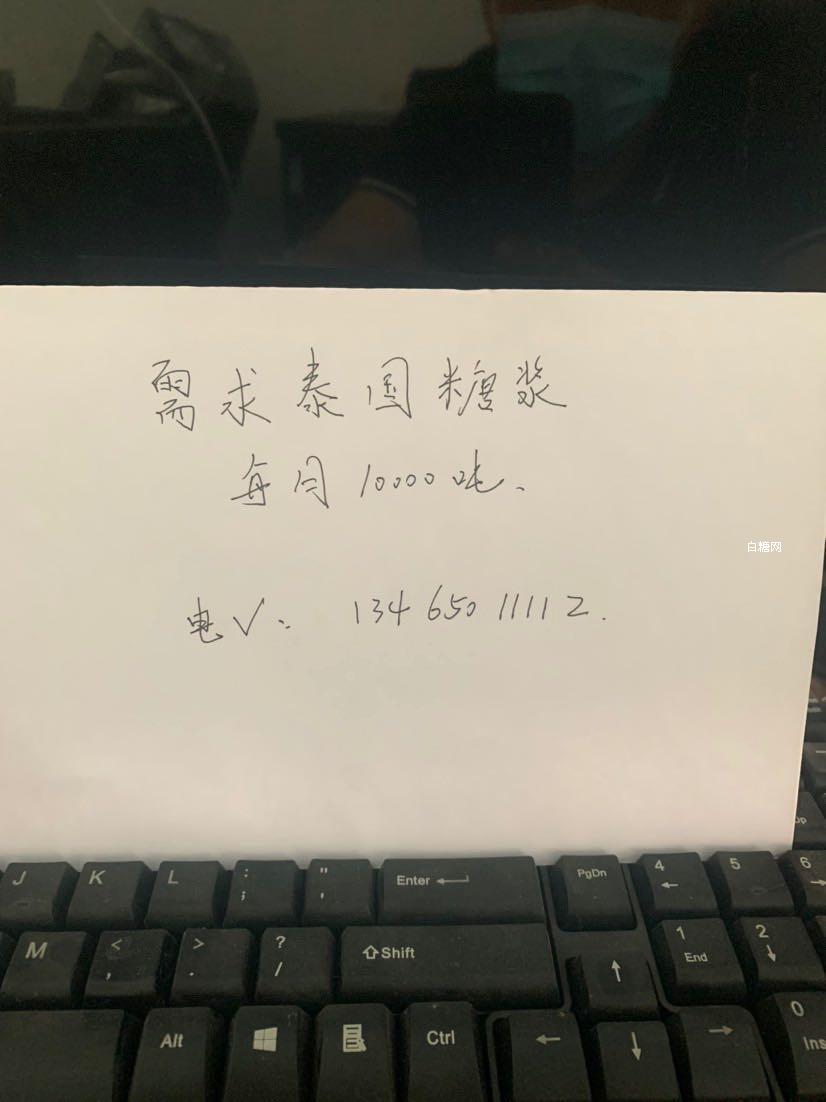 需求泰国糖浆
每月10000吨.
白糖网
电V: 134 650 11112.
J K L : ; " ' Enter PgDn 4 5 6
M < , > . ? / Shift 1 End 2
Alt Ctrl 0 Ins